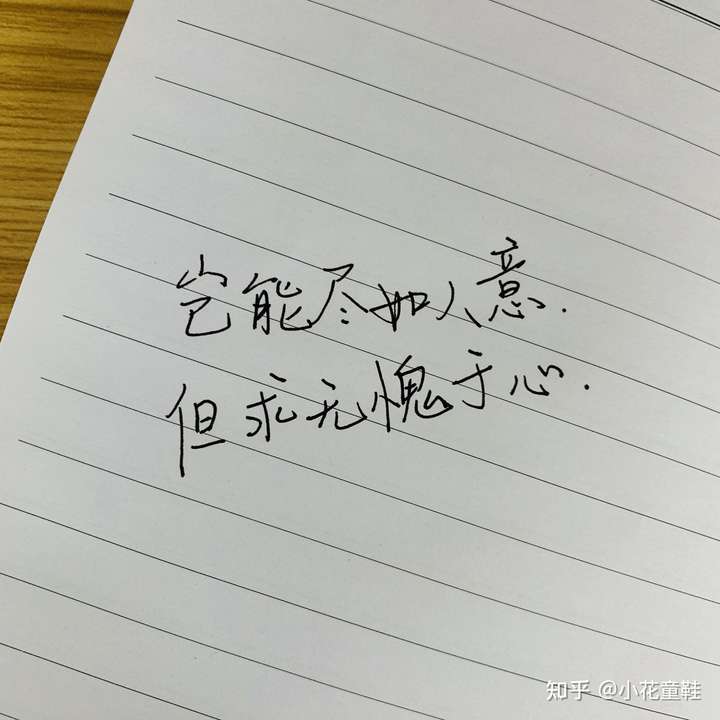 岂能尽如人意.
但求无愧于心.
知乎 @小花童鞋